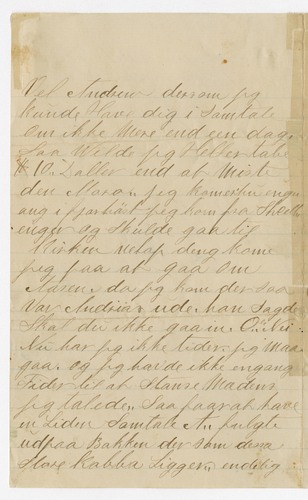 Vel Andrew dersom jeg
kunde Have dig i Samtale
om ikke Mere end een dag.
Saa Wilde jeg Heller tabe
$ 10. Daller end at Miste
den Moroa. jeg
ang i fjorhöst jeg kom fra
og skulde gaa til
Kirken netop
jeg paa at gaa om
da jeg kom der saa
Var Andrew ude. han Sagde
Skal du ikke gaa in. O. Nei
Nu har jeg ikke tider. jeg Maa
gaa. og jeg hai de ikke engang
Tider til at Stanse Medens
jeg talede. Saa for at have
en Liden Samtale
udpaa Bakken der som dena
Store Kabba Ligger, endelig